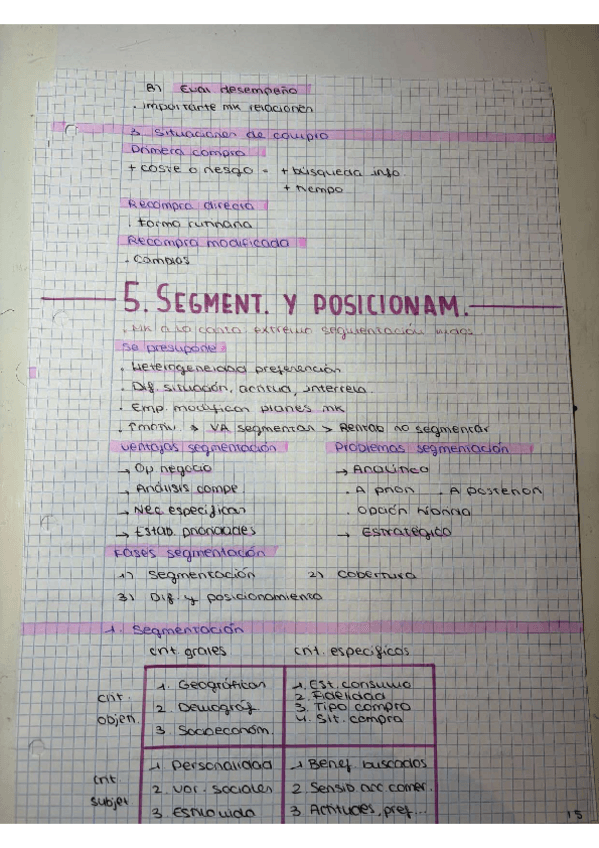 B) Eval desempeño
. importante mk relaciones
3. Situaciones de compra
Primera compra
+ coste o riesgo = + búsqueda info.
+ tiempo
Recompra directa
. forma rutinaria
Recompra modificada
. Cambios
5. SEGMENT. Y POSICIONAM.
. MK a la carta extremo segmentación mdos
Se presupone
. Heterogeneidad preferencias
. Dif. situación, actitud, intereses
. Emp. modifican planes mk
. VA segmentar > Rentab no segmentar
Ventajas segmentación
Problemas segmentación
→ Op negocio
→ Analítico
→ Análisis compe.
. A priori . A posteriori
→ Nec específicas
. Opción híbrida
→ Estab. prioridades
→ Estratégico
Fases segmentación
1) Segmentación 2) Cobertura
3) Dif. y posicionamiento
1. Segmentación
crit. grales crit. específicos
crit. objen.
1. Geográficas
2. Demográf
3. Socioeconóm.
1. Est. consumo
2. Fidelidad
3. Tipo compra
4. Sit. compra
crit subjet
1. Personalidad
2. Var. sociales
3. Estilo vida
1. Benef. buscados
2. Sensib acc comer.
3. Actitudes, pref...
15